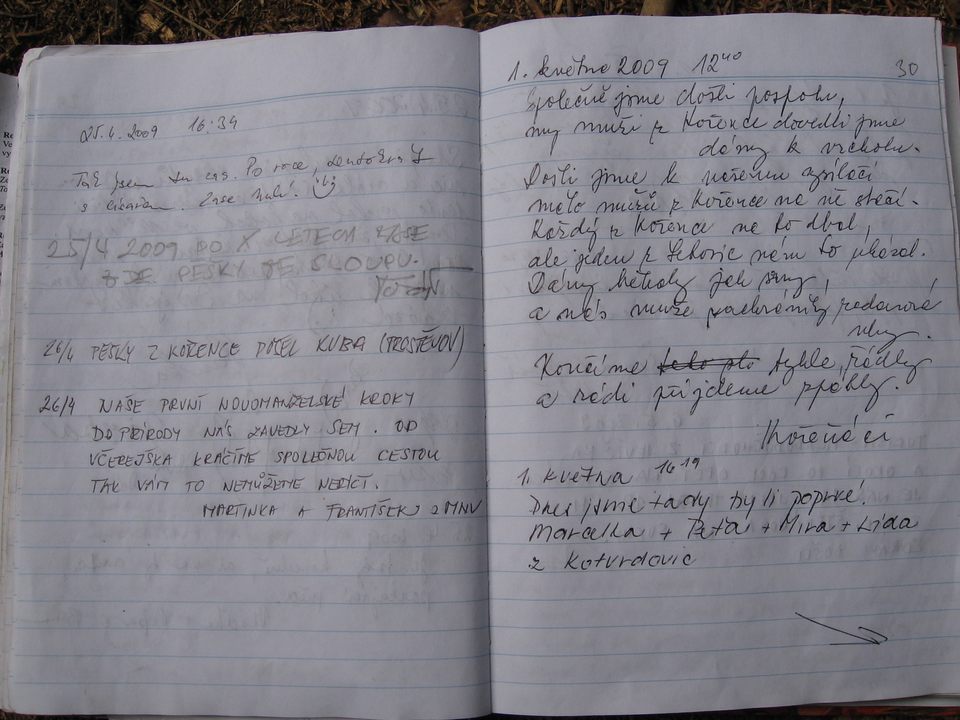 25.4.2009 16:34
Tak jsem tu zas. Po roce,
s
25/4 2009 PO X LETECH ZASE
ZDE PĚŠKY ZE SLOUPU.
26/4 PĚŠKY Z KOŘENCE DOŠEL KUBA (PROSTĚJOV)
26/4 NAŠE PRVNÍ NOVOMANŽELSKÉ KROKY
DO PŘÍRODY NÁS ZAVEDLY SEM. OD
VČEREJŠKA KRÁČÍME SPOLEČNOU CESTOU
TAK VÁM TO NEMŮŽEME NEŘÍCT.
MARTINKA A FRANTIŠEK Z MNV
30
1. května 2009 12 40
Společně jsme došli pospolu,
my muži z Kořence dovedli jsme
dámy k vrcholu.
Došli jsme k našemu
málo mužů z Kořence na ně stačí.
Každý z Kořence na to dbal,
ale jeden z nám to ukázal.
Dámy běhaly jak srny,
a nás muže zachránily

Končíme tyhle řádky
a rádi přijdeme zpátky.
Kořeňáci
1. května 16 19
Dnes jsme tady byli poprvé.
Marcelka + Péťa + Míra + Lída
z Kotvrdovic